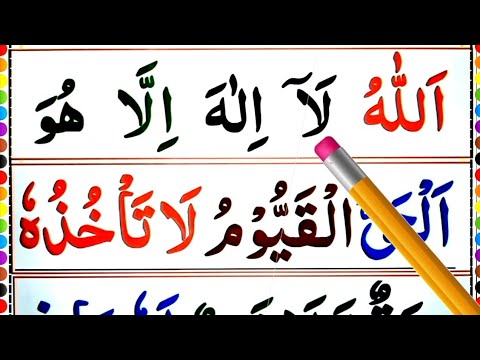 اَللّٰهُ لَاۤ اِلٰهَ اِلَّا هُوَ
اَلْحَیُّ الْقَیُّوْمُ لَا تَاْخُذُهٗ